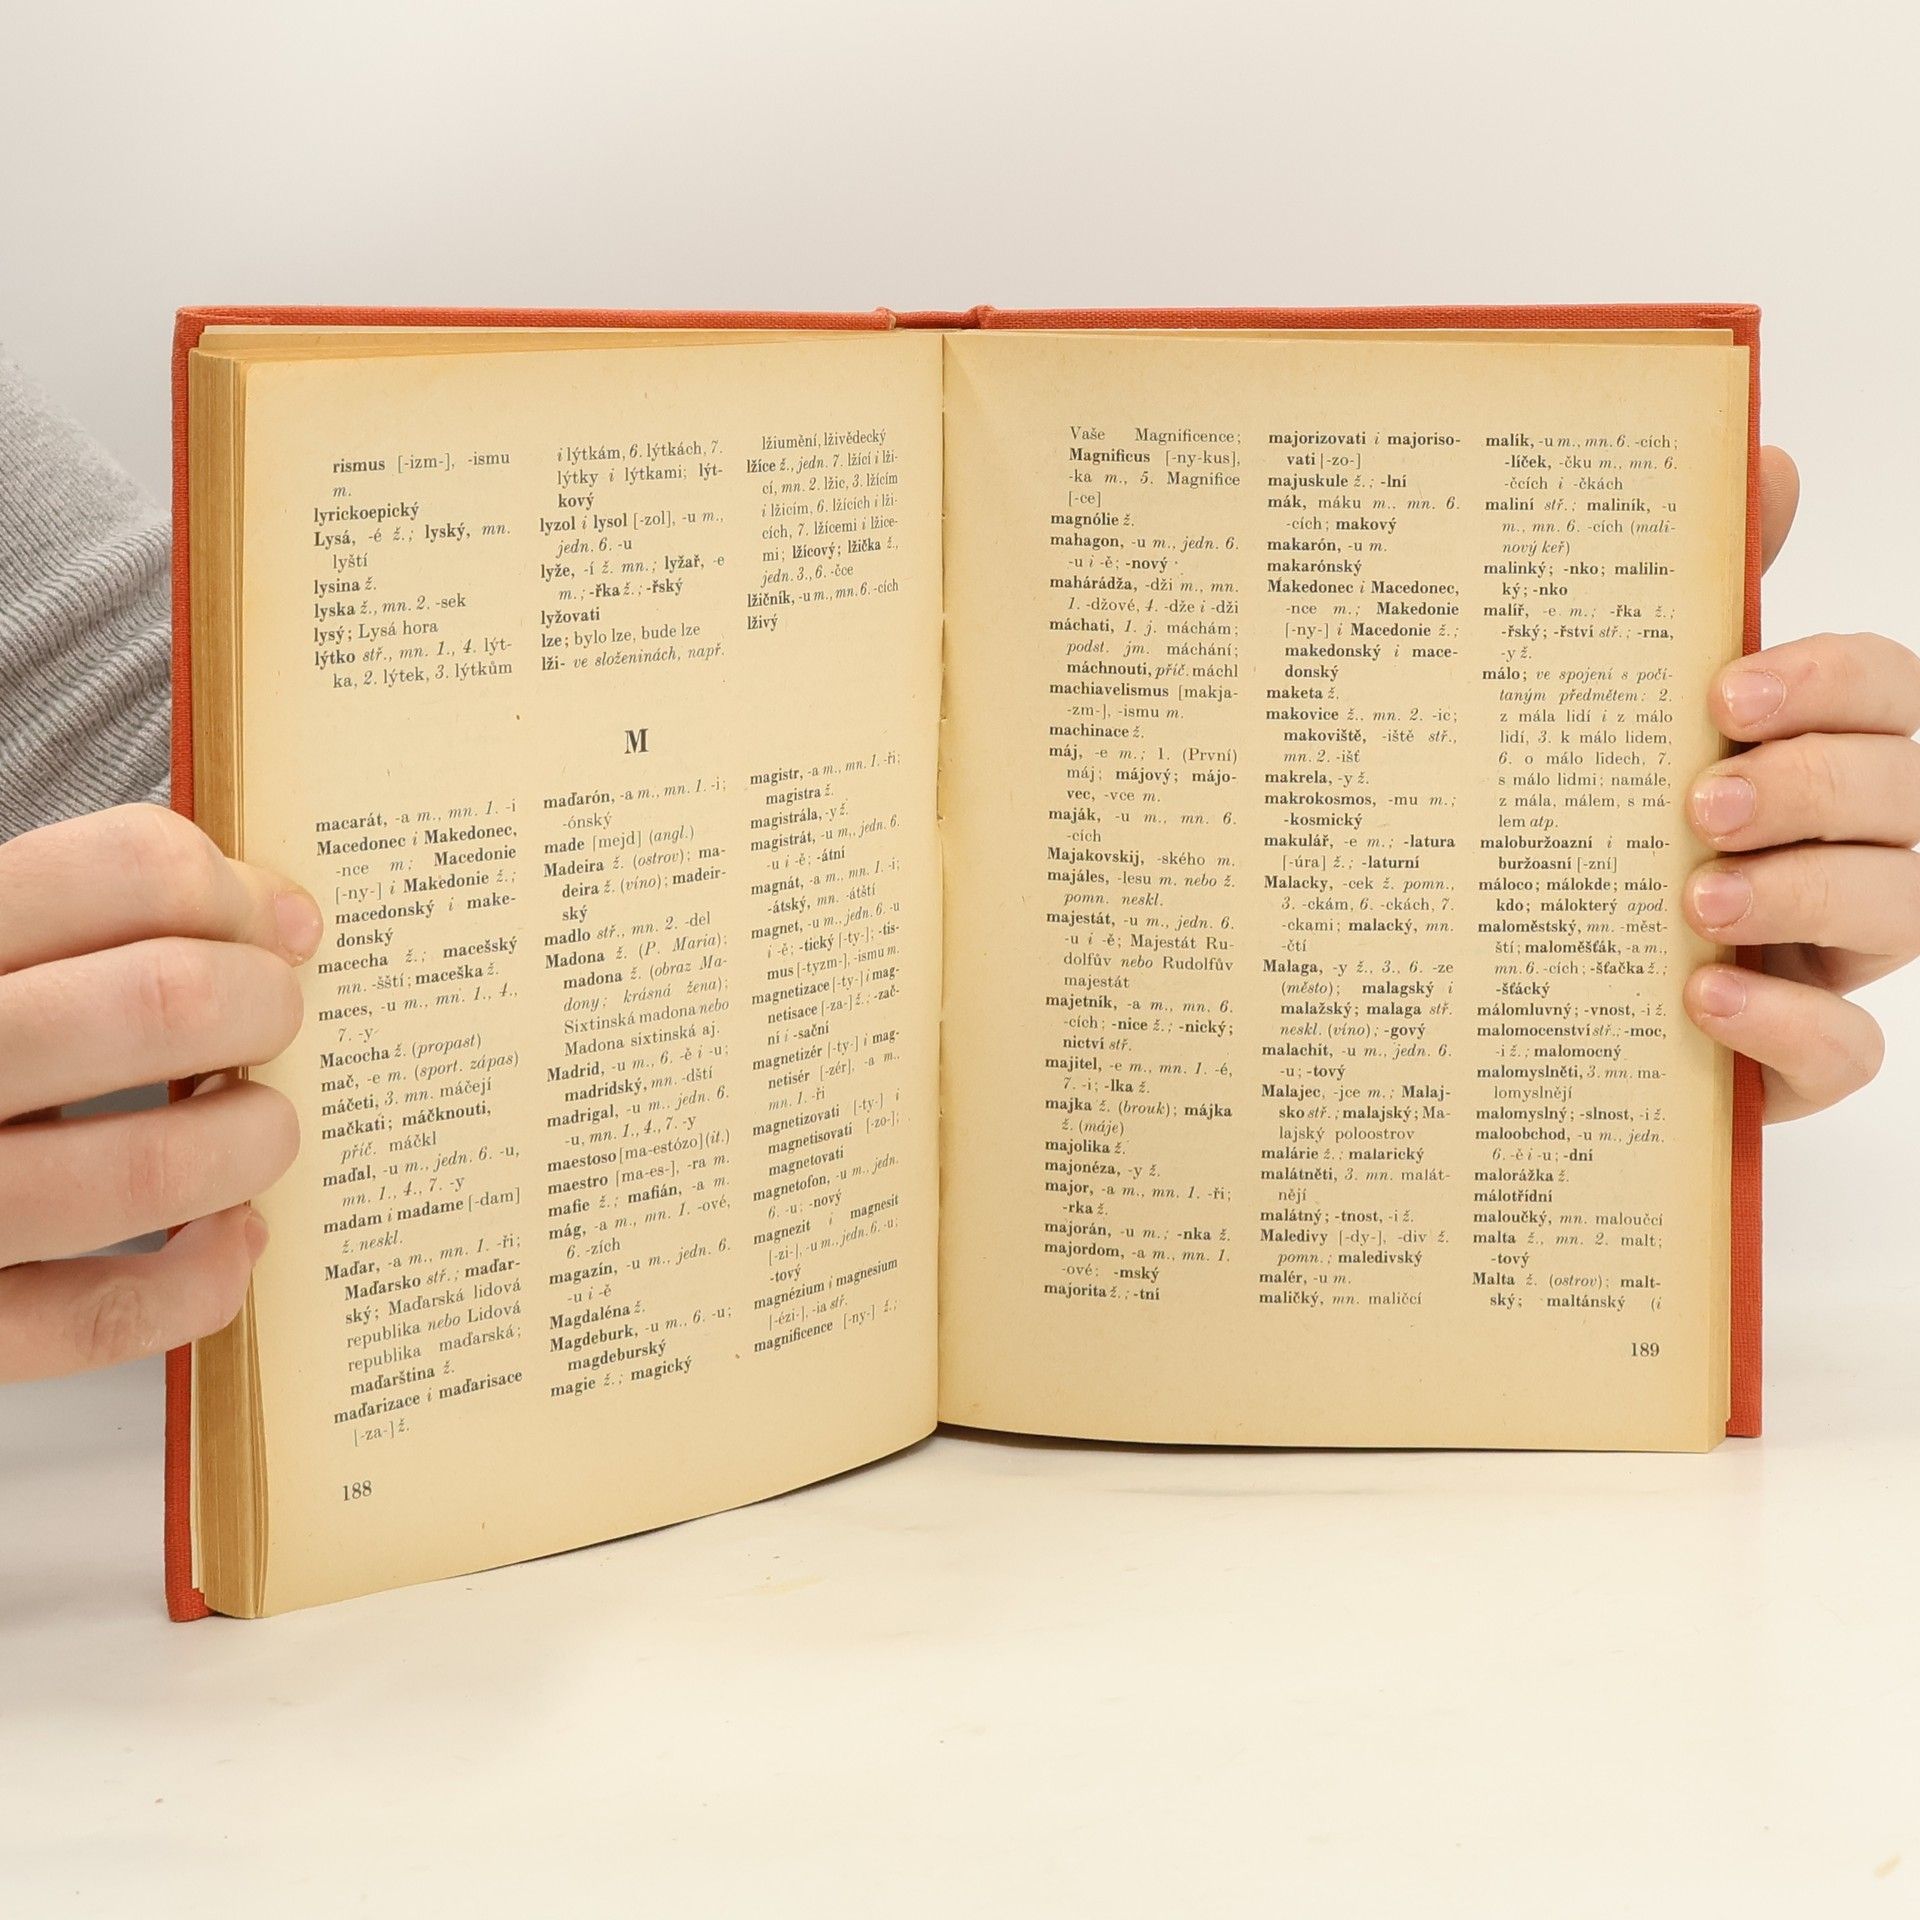 rismus [-izm-], -ismu
m.
lyrickoepický
Lysá, -é ž.; lyský, mn.
lyští
lysina ž.
lyska ž., mn. 2. -sek
lysý; Lysá hora
lýtko stř., mn. 1., 4. lýt-
ka, 2. lýtek, 3. lýtkům
i lýtkám, 6. lýtkách, 7.
lýtky i lýtkami; lýt-
kový
lyzol i lysol [-zol], -u m.,
jedn. 6. -u
lyže, -í ž. mn.; lyžař, -e
m.; -řka ž.; -řský
lyžovati
lze; bylo lze, bude lze
lži- ve složeninách, např.
lžiumění, lživědecký
lžíce ž., jedn. 7. lžící i lži-
cí, mn. 2. lžic, 3. lžícím
i lžicím, 6. lžících i lži-
cích, 7. lžícemi i lžice-
mi; lžícový; lžička ž.,
jedn. 3., 6. -čce
lžičník, -u m., mn. 6. -cích
lživý
M
macarát, -a m., mn. 1. -i
Macedonec i Makedonec,
-nce m; Macedonie
[-ny-] i Makedonie ž.;
macedonský i make-
donský
macecha ž.; macešský
mn. -šští; maceška ž.
maces, -u m., mn. 1., 4.,
7. -y
Macocha ž. (propast)
mač, -e m. (sport. zápas)
máčeti, 3. mn. máčejí
mačkati; máčknouti,
příč. máčkl
maďal, -u m., jedn. 6. -u,
mn. 1., 4., 7. -y
madam i madame [-dam]
ž. neskl.
Maďar, -a m., mn. 1. -ři;
Maďarsko stř.; maďar-
ský; Maďarská lidová
republika nebo Lidová
republika maďarská;
maďarština ž.
maďarizace i maďarisace
[-za-] ž.
maďarón, -a m., mn. 1. -i;
-ónský
made [mejd] (angl.)
Madeira ž. (ostrov); ma-
deira ž. (víno); madeir-
ský
madlo stř., mn. 2. -del
Madona ž. (P. Maria);
madona ž. (obraz Ma-
dony; krásná žena);
Sixtinská madona nebo
Madona sixtinská aj.
Madrid, -u m., 6. -ě i -u;
madridský, mn. -dští
madrigal, -u m., jedn. 6.
-u, mn. 1., 4., 7. -y
maestoso [ma-estózo] (it.)
maestro [ma-es-], -ra m.
mafie ž.; mafián, -a m.
mág, -a m., mn. 1. -ové,
6. -zích
magazín, -u m., jedn. 6.
-u i -ě
Magdaléna ž.
Magdeburk, -u m., 6. -u;
magdeburský
magie ž.; magický
magistr, -a m., mn. 1. -ři;
magistra ž.
magistrála, -y ž.
magistrát, -u m., jedn. 6.
-u i -ě; -átní
magnát, -a m., mn. 1. -i;
-átský, mn. -átští
magnet, -u m., jedn. 6. -u
i -ě; -tický [-ty-]; -tis-
mus [-tyzm-], -ismu m.
magnetizace [-ty-] i mag-
netisace [-za-] ž.; -zač-
ní i -sační
magnetizér [-ty-] i mag-
netisér [-zér], -a m.,
mn. 1. -ři
magnetizovati [-ty-] i
magnetisovati [-zo-];
magnetovati
magnetofon, -u m., jedn.
6. -u; -nový
magnezit i magnesit
[-zi-], -u m., jedn. 6. -u;
-tový
magnézium i magnesium
[-ézi-], -ia stř.
magnificence [-ny-] ž.;
188
Vaše Magnificence;
Magnificus [-ny-kus],
-ka m., 5. Magnifice
[-ce]
magnólie ž.
mahagon, -u m., jedn. 6.
-u i -ě; -nový
mahárádža, -dži m., mn.
1. -džové, 4. -dže i -dži
máchati, 1. j. máchám;
podst. jm. máchání;
máchnouti, příč. máchl
machiavelismus [makja-
-zm-], -ismu m.
machinace ž.
máj, -e m.; 1. (První)
máj; májový; májo-
vec, -vce m.
maják, -u m., mn. 6.
-cích
Majakovskij, -ského m.
majáles, -lesu m. nebo ž.
pomn. neskl.
majestát, -u m., jedn. 6.
-u i -ě; Majestát Ru-
dolfův nebo Rudolfův
majestát
majetník, -a m., mn. 6.
-cích; -nice ž.; -nický;
nictví stř.
majitel, -e m., mn. 1. -é,
7. -i; -lka ž.
majka ž. (brouk); májka
ž. (máje)
majolika ž.
majonéza, -y ž.
major, -a m., mn. 1. -ři;
-rka ž.
majorán, -u m.; -nka ž.
majordom, -a m., mn. 1.
-ové; -mský
majorita ž.; -tní
majorizovati i majoriso-
vati [-zo-]
majuskule ž.; -lní
mák, máku m., mn. 6.
-cích; makový
makarón, -u m.
makarónský
Makedonec i Macedonec,
-nce m.; Makedonie
[-ny-] i Macedonie ž.;
makedonský i mace-
donský
maketa ž.
makovice ž., mn. 2. -ic;
makoviště, -iště stř.,
mn. 2. -išť
makrela, -y ž.
makrokosmos, -mu m.;
-kosmický
makulář, -e m.; -latura
[-úra] ž.; -laturní
Malacky, -cek ž. pomn.,
3. -ckám, 6. -ckách, 7.
-ckami; malacký, mn.
-čtí
Malaga, -y ž., 3., 6. -ze
(město); malagský i
malažský; malaga stř.
neskl. (víno); -gový
malachit, -u m., jedn. 6.
-u; -tový
Malajec, -jce m.; Malaj-
sko stř.; malajský; Ma-
lajský poloostrov
malárie ž.; malarický
malátněti, 3. mn. malát-
nějí
malátný; -tnost, -i ž.
Maledivy [-dy-], -div ž.
pomn.; maledivský
malér, -u m.
maličký, mn. maličcí
malík, -u m., mn. 6. -cích;
-líček, -čku m., mn. 6.
-čcích i -čkách
maliní stř.; maliník, -u
m., mn. 6. -cích (mali-
nový keř)
malinký; -nko; malilin-
ký; -nko
malíř, -e m.; -řka ž.;
-řský; -řství stř.; -rna,
-y ž.
málo; ve spojení s počí-
taným předmětem: 2.
z mála lidí i z málo
lidí, 3. k málo lidem,
6. o málo lidech, 7.
s málo lidmi; namále,
z mála, málem, s má-
lem atp.
maloburžoazní i malo-
buržoasní [-zní]
máloco; málokde; málo-
kdo; málokterý apod.
maloměstský, mn. -měst-
ští; maloměšťák, -a m.,
mn. 6. -cích; -šťačka ž.;
-šťácký
málomluvný; -vnost, -i ž.
malomocenství stř.; -moc,
-i ž.; malomocný
malomyslněti, 3. mn. ma-
lomyslnějí
malomyslný; -slnost, -i ž.
maloobchod, -u m., jedn.
6. -ě i -u; -dní
malorážka ž.
málotřídní
maloučký, mn. maloučcí
malta ž., mn. 2. malt;
-tový
Malta ž. (ostrov); malt-
ský; maltánský (i
189